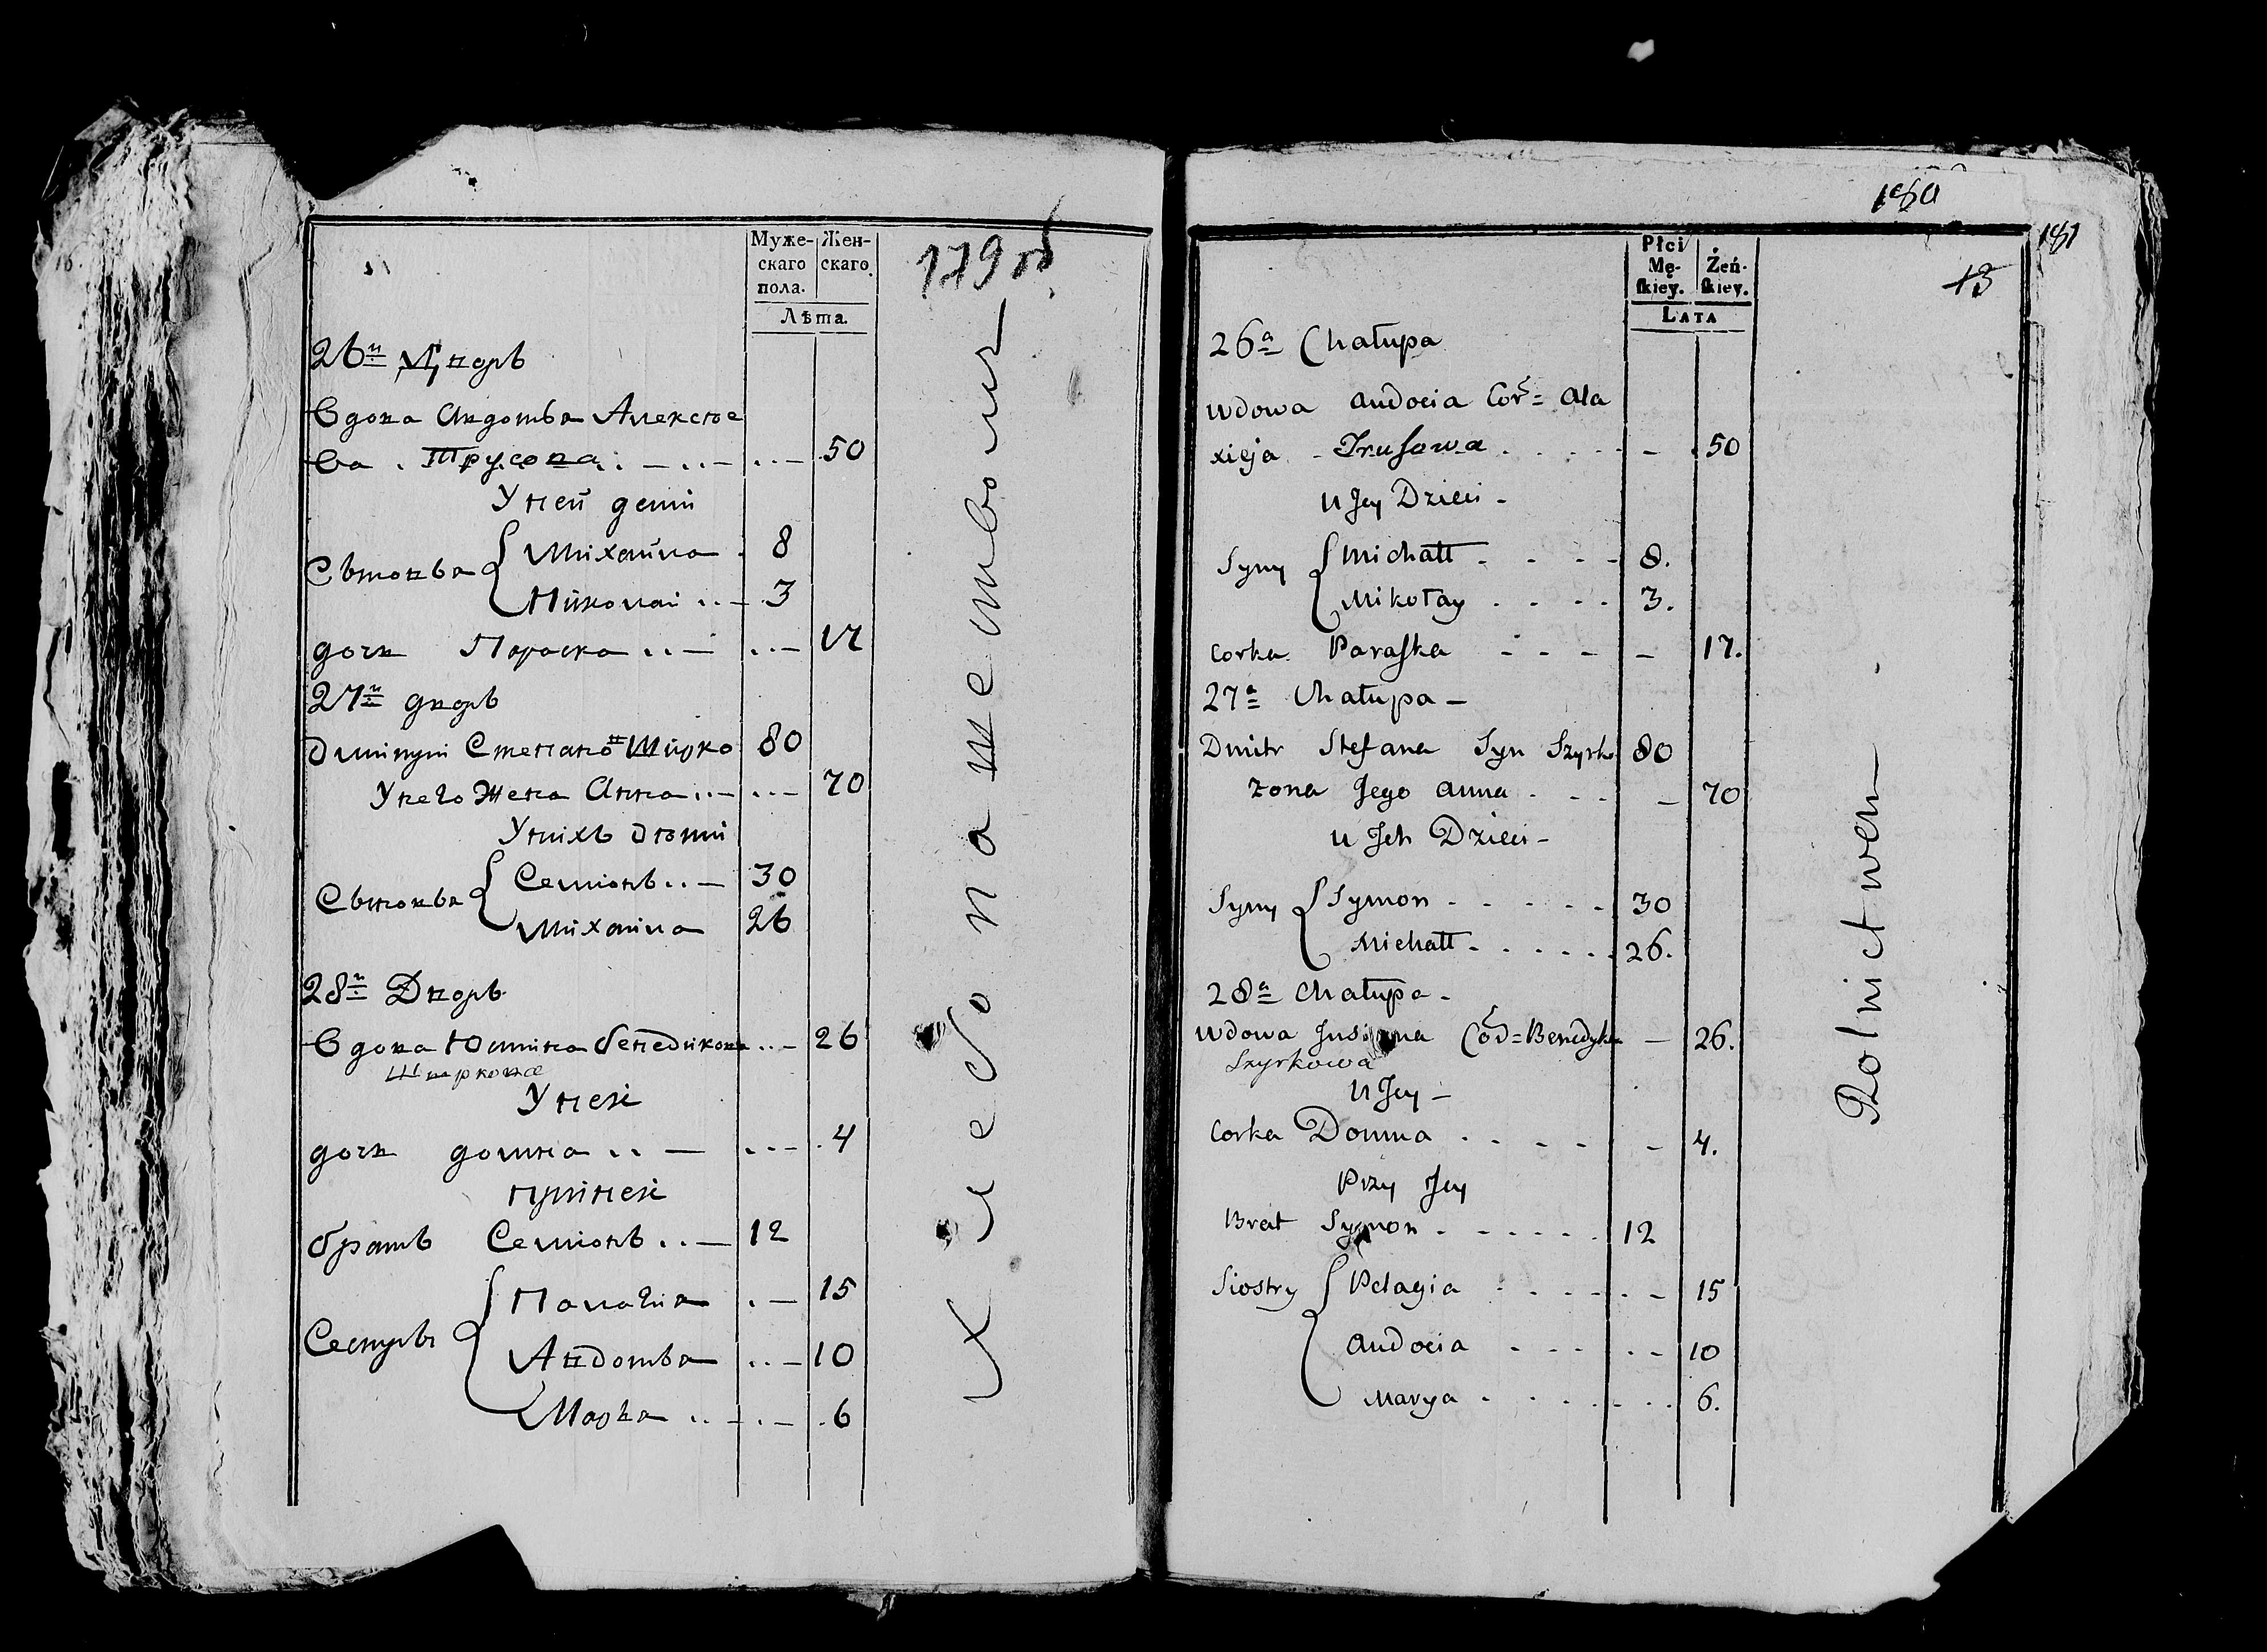 Муже-
скаго
пола.
Жен-
скаго.
Лѣта.
179 об
26й Дворъ
Вдова Авдотья Алексѣе
ва Трусова 50
У ней дети
Сыновья Михайла 8
Николай 3
дочь Пораска 17
27й дворъ
Дмитрий Степановъ Ширко 80
У него жена Анна 70
У нихъ дѣти
Сыновья Семионъ 30
Михайла 26
28й Дворъ
Вдова Юстина Бенедикова 26
Ширкова
У неи
дочь домна 4
при неи
братъ Семионъ 12
Сестры Палагия 15
Авдотья 10
Марья 6
Хлебопашетвом
180
181
13
Płci
Mę-
ſkiey.
Żeń-
ſkiey.
LATA
26a Chałupa
Wdowa Audocia Cor= Ala
xieja Truſowa 50
u Jey Dzieci
Syny Michałł 8.
Mikołay 3.
Corka Paraſka 17.
27a Chałupa
Dmitr Stefana Syn Szyrko 80
żona Jego Anna 70
u Jch Dzieci
Syny Symon 30
Michałł 26.
28a Chałupa
Wdowa Cor=Benedykta 26.
Szyrkowa
u Jey
Corka Domna 4.
Przy Jey
Brat Symon 12
Siostry Pelagia 15
Audocia 10
Marya 6.
Rolnictwem